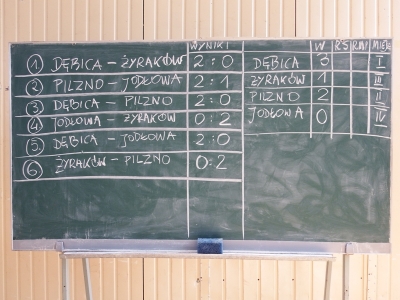 WYNIKI
1 DĘBICA – ŻYRAKÓW 2:0
2 PILZNO – JODŁOWA 2:1
3 DĘBICA – PILZNO 2:0
4 JODŁOWA – ŻYRAKÓW 0:2
5. DĘBICA – JODŁOWA 2:0
6 ŻYRAKÓW – PILZNO 0:2
W
DĘBICA 3 I
ŻYRAKÓW 1 III
PILZNO 2 II
JODŁOWA 0 IV